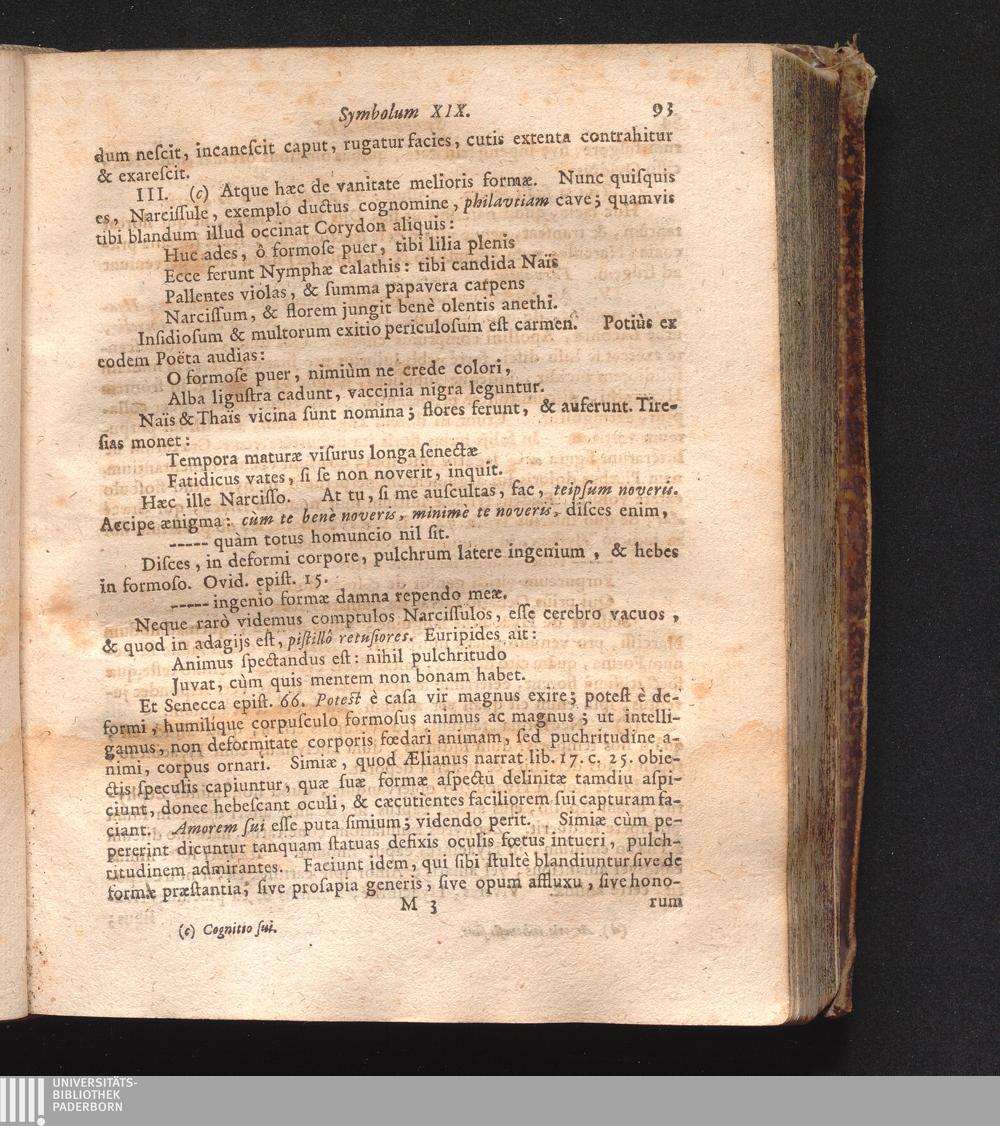 Symbolum XIX. 93
dum neſcit, incaneſcit caput, rugatur facies, cutis extenta contrahitur
& exareſcit.
III. (c) Atque hæc de vanitate melioris formæ. Nunc quiſquis
es, Narciſſule, exemplo ductus cognomine, philavtiam cave; quamvis
tibi blandum illud occinat Corydon aliquis:
Huc ades, ô formoſe puer, tibi lilia plenis
Ecce ferunt Nymphæ calathis: tibi candida Naïs
Pallentes violas, & ſumma papavera carpens
Narciſſum, & florem jungit benè olentis anethi.
Inſidioſum & multorum exitio periculoſum eſt carmen. Potiùs ex
eodem Poëta audias:
O formoſe puer, nimiùm ne crede colori,
Alba liguſtra cadunt, vaccinia nigra leguntur.
Naïs & Thaïs vicina ſunt nomina; flores ferunt, & auferunt. Tire-
ſias monet:
Tempora maturæ viſurus longa ſenectæ
Fatidicus vates, ſi ſe non noverit, inquit.
Hæc ille Narciſſo. At tu, ſi me auſcultas, fac, teipſum noveris.
Accipe ænigma: cùm te benè noveris, minimè te noveris, diſces enim,
----- quàm totus homuncio nil ſit.
Diſces, in deformi corpore, pulchrum latere ingenium, & hebes
in formoſo. Ovid. epiſt. 15.
----- ingenio formæ damna rependo meæ.
Neque rarò videmus comptulos Narciſſulos, eſſe cerebro vacuos,
& quod in adagijs eſt, piſtillô retuſiores. Euripides ait:
Animus ſpectandus eſt: nihil pulchritudo
Juvat, cùm quis mentem non bonam habet.
Et Senecca epiſt. 66. Poteſt è caſa vir magnus exire; poteſt è de-
formi, humilíque corpuſculo formoſus animus ac magnus; ut intelli-
gamus, non deformitate corporis fœdari animam, ſed puchritudine a-
nimi, corpus ornari. Simiæ, quod Ælianus narrat lib. 17. c. 25. obie-
ctis ſpeculis capiuntur, quæ ſuæ formæ aſpectu delinitæ tamdiu aſpi-
ciunt, donec hebeſcant oculi, & cæcutientes faciliorem ſui capturam fa-
ciant. Amorem ſui eſſe puta ſimium; videndo perit. Simiæ cùm pe-
pererint dicuntur tanquam ſtatuas defixis oculis fœtus intueri, pulch-
ritudinem admirantes. Faciunt idem, qui ſibi ſtultè blandiuntur ſive de
formæ præſtantia, ſive proſapia generis, ſive opum affluxu, ſive hono-
M 3 rum
(c) Cognitio ſui.
UNIVERSITÄTS-
BIBLIOTHEK
PADERBORN